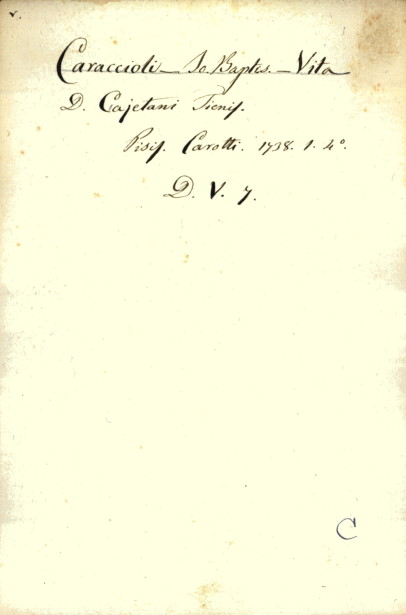 Caraccioli - Jo. Baptis. - Vita
D. Cajetani Tienis.
Pisis. Carotti. 1738. 1. 4º.
D. V. 7.
C